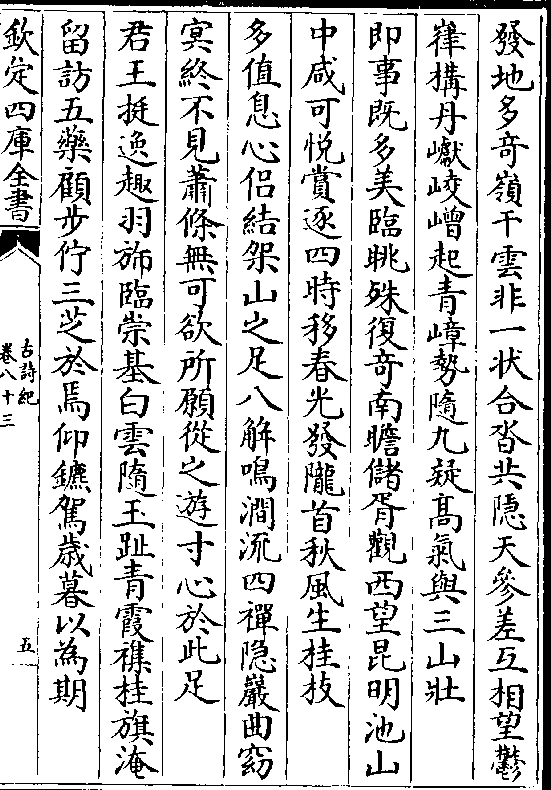 發地多竒嶺干雲非一状合沓共隠天參差互相望鬱
嵂構丹巘崚嶒起青嶂勢隨九疑髙氣與三山壯
即事既多美臨眺殊復竒南瞻儲胥觀西望昆明池山
中咸可悦賞逐四時移春光發隴首秋風生桂枝
多值息心侶結架山之足八解鳴澗流四禪隠巖曲窈
㝠終不見蕭條無可欲所願從之遊寸心於此足
君王挺逸趣羽斾臨崇基白雲隨玉趾青霞襍桂旗淹
留訪五藥顧步佇三芝於焉仰鑣駕歳暮以為期
欽定四庫全書
古詩紀
卷八十三
五